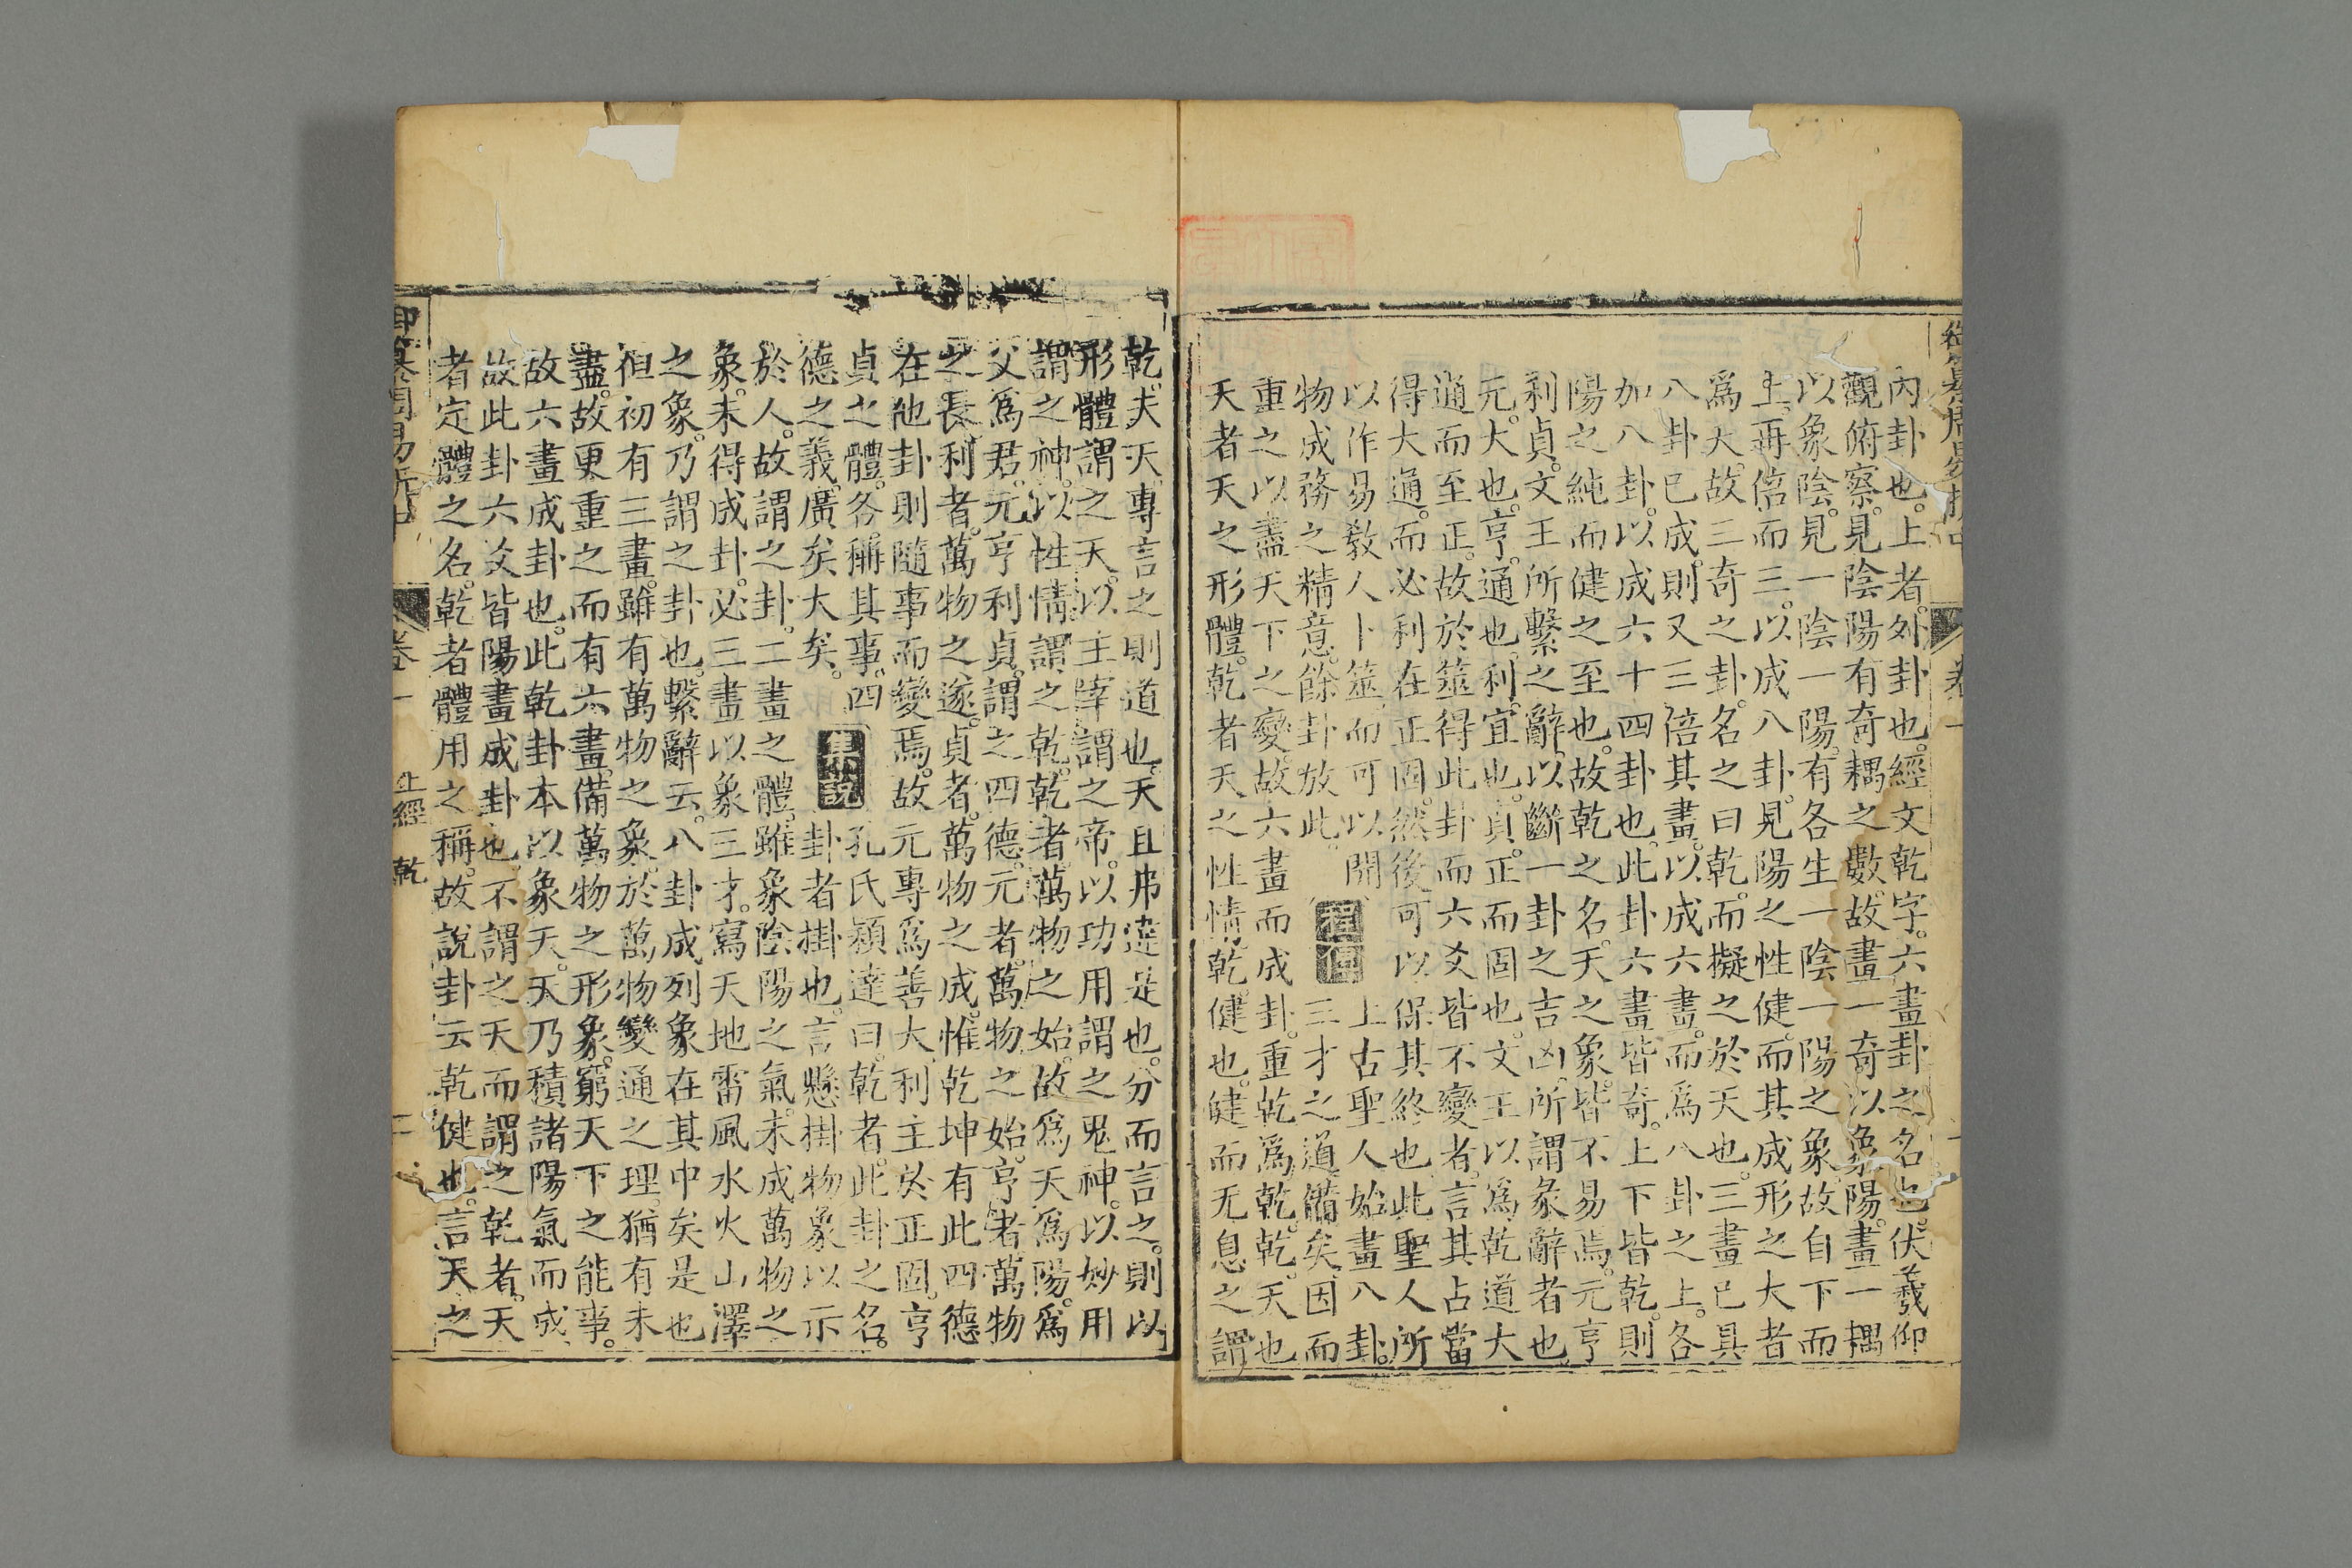 御纂周易折中 卷一
內卦也。上者。外卦也。經文乾字。六畫卦之名也。伏羲仰
觀俯察。見陰陽有奇耦之數。故畫一奇以象陽。畫一耦
以象陰。見一陰一陽。有各生一陰一陽之象。故自下而
上。再倍而三。以成八卦。見陽之性健。而其成形之大者
爲天。故三奇之卦。名之曰乾。而擬之於天也。三畫已具
八卦已成。則又三倍其畫。以成六畫。而爲八卦之上。各
加八卦。以成六十四卦也。此卦六畫皆奇。上下皆乾。則
陽之純而健之至也。故乾之名。天之象。皆不易焉。元亨
利貞。文王所繫之辭。以斷一卦之吉凶。所謂彖辭者也。
元。大也。亨。通也。利。宜也。貞。正而固也。文王以爲乾道大
通而至正。故於筮得此卦而六爻皆不變者。言其占當
得大通。而必利在正固。然後可以保其終也。此聖人所
以作易敎人卜筮。而可以開
物成務之精意。餘卦放此。
程傳
上古聖人始畫八卦。
三才之道備矣。因而
重之以盡天下之變。故六畫而成卦。重乾爲乾。乾。天也
天者天之形體。乾者天之性情。乾。健也。健而无息之謂
乾。夫天專言之則道也。天且弗違是也。分而言之。則以
形體謂之天。以主宰謂之帝。以功用謂之鬼神。以妙用
謂之神。以性情謂之乾。乾者。萬物之始。故爲天爲陽。爲
父爲君。元亨利貞。謂之四德。元者。萬物之始。亨者萬物
之長。利者。萬物之遂。貞者。萬物之成。惟乾坤有此四德
在他卦則隨事而變焉。故元專爲善大。利主於正固。亨
貞之體。各稱其事。四
德之義。廣矣大矣。
集說
孔氏穎達曰。乾者。此卦之名。
卦者掛也。言懸掛物象以示
於人。故謂之卦。二畫之體。雖象陰陽之氣。未成萬物之
象。未得成卦。必三畫以象三才。寫天地雷風水火山澤
之象。乃謂之卦也。繫辭云。八卦成列象在其中矣是也
但初有三畫。雖有萬物之象。於萬物變通之理。猶有未
盡。故更重之而有六畫。備萬物之形象。窮天下之能事。
故六畫成卦也。此乾卦本以象天。天乃積諸陽氣而成。
故此卦六爻皆陽畫成卦也。不謂之天而謂之乾者。天
者定體之名。乾者體用之稱。故說卦云乾健也。言天之
御纂周易折中 卷一 上經 乾 二